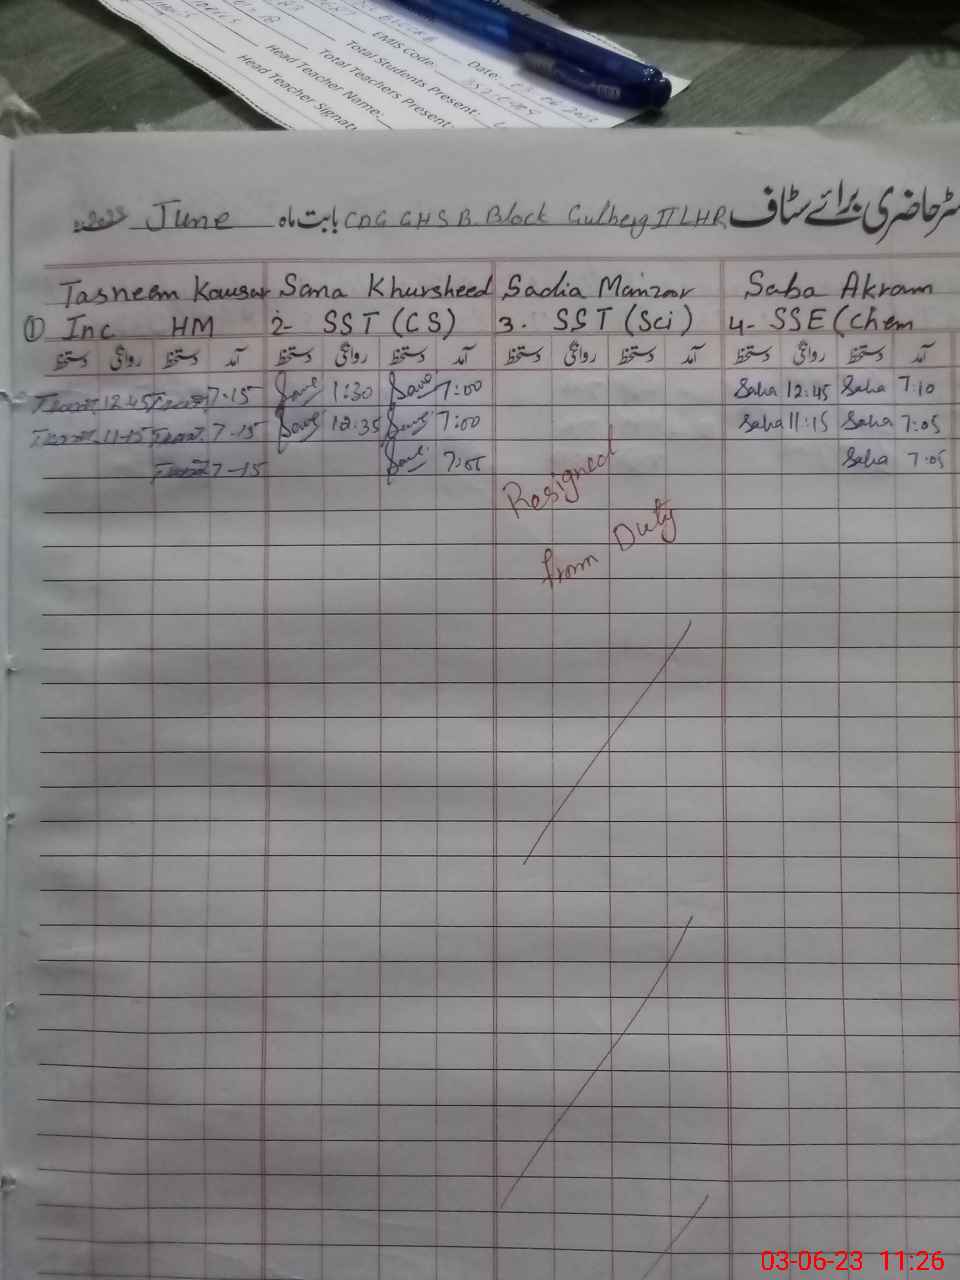 EMIS Code:
Date: 03.06.2023
Total Students Present:
Total Teachers Present:
Head Teacher Name:
Head Teacher Signat
ٹر حاضری برائے سٹاف CDG GHS B. Block Gulberg II LHR بابت ماہ June 2023
Tasneem Kousar Sana Khursheed Sadia Manzoor Saba Akram
① Inc HM 2- SST (CS) 3. SST (Sci) 4- SSE (Chem
دستخط روانگی دستخط آمد دستخط روانگی دستخط آمد دستخط روانگی دستخط آمد دستخط روانگی دستخط آمد
12.45 7-15 Sana 1:30 Sana 7:00 Saba 12:45 Saba 7:10
11-15 7-15 Sana 12:35 Sana 7:00 Saba 11:15 Saba 7:05
7-15 Sana 7:05 Saba 7:05
Resigned
from Duty
03-06-23 11:26